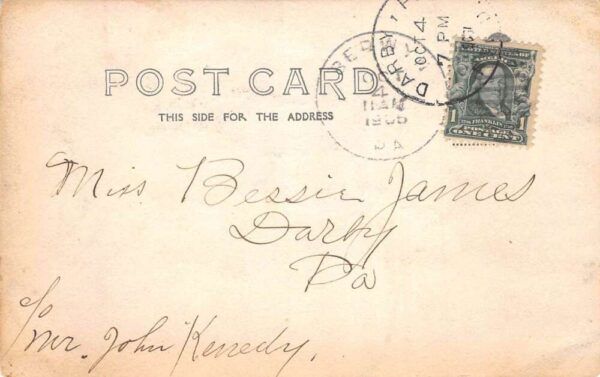 DARBY,
OCT 4
7 PM
11 AM
1905
PA
POST CARD
THIS SIDE FOR THE ADDRESS
FRANKLIN
1 POSTAGE 1
ONE CENT
Miss Bessie James
Darby
Pa
c/o
Mr. John Kenedy,